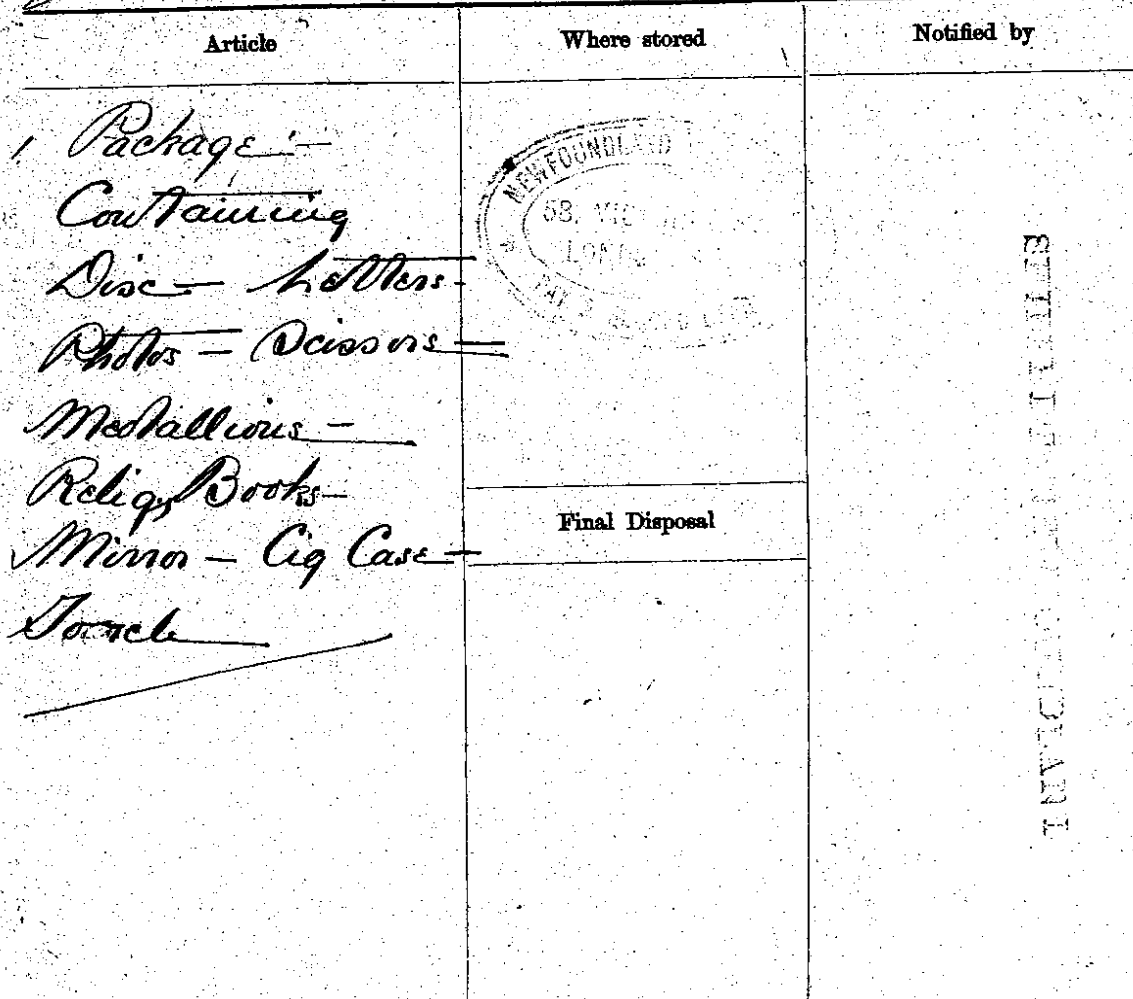 Article
Where stored
Notified by
1 Package :—
Containing
Disc — Letters —
Photos — Scissors —
Medallions —
Relig Books —
Mirror — Cig Case —
Torch
NEWFOUNDLAND
58, VIC
LOND
PAY &
Final Disposal